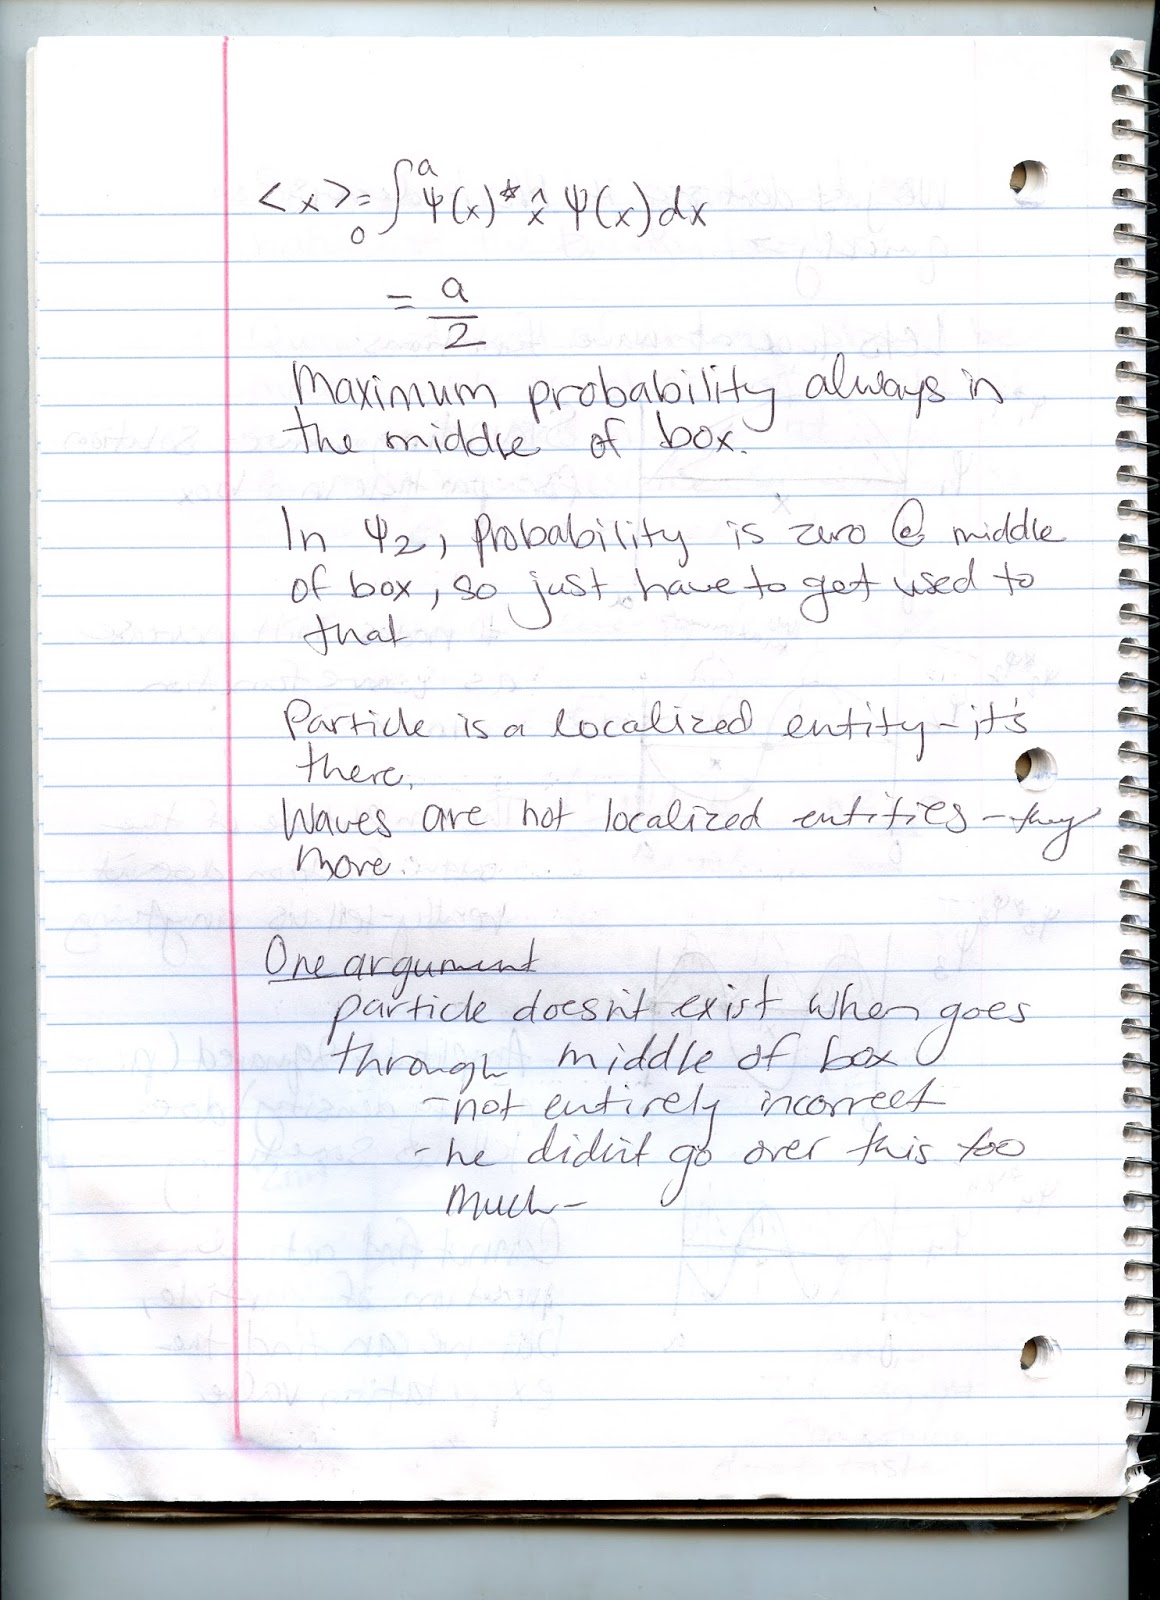 <x> = ∫₀ᵃ ψ(x)* x̂ ψ(x) dx
= a/2
Maximum probability always in
the middle of box.
In ψ₂, probability is zero @ middle
of box, so just have to get used to
that
Particle is a localized entity - it's
there.
Waves are not localized entities - they
move.
One argument
particle doesn't exist when goes
through middle of box
- not entirely incorrect
- he didn't go over this too
much -